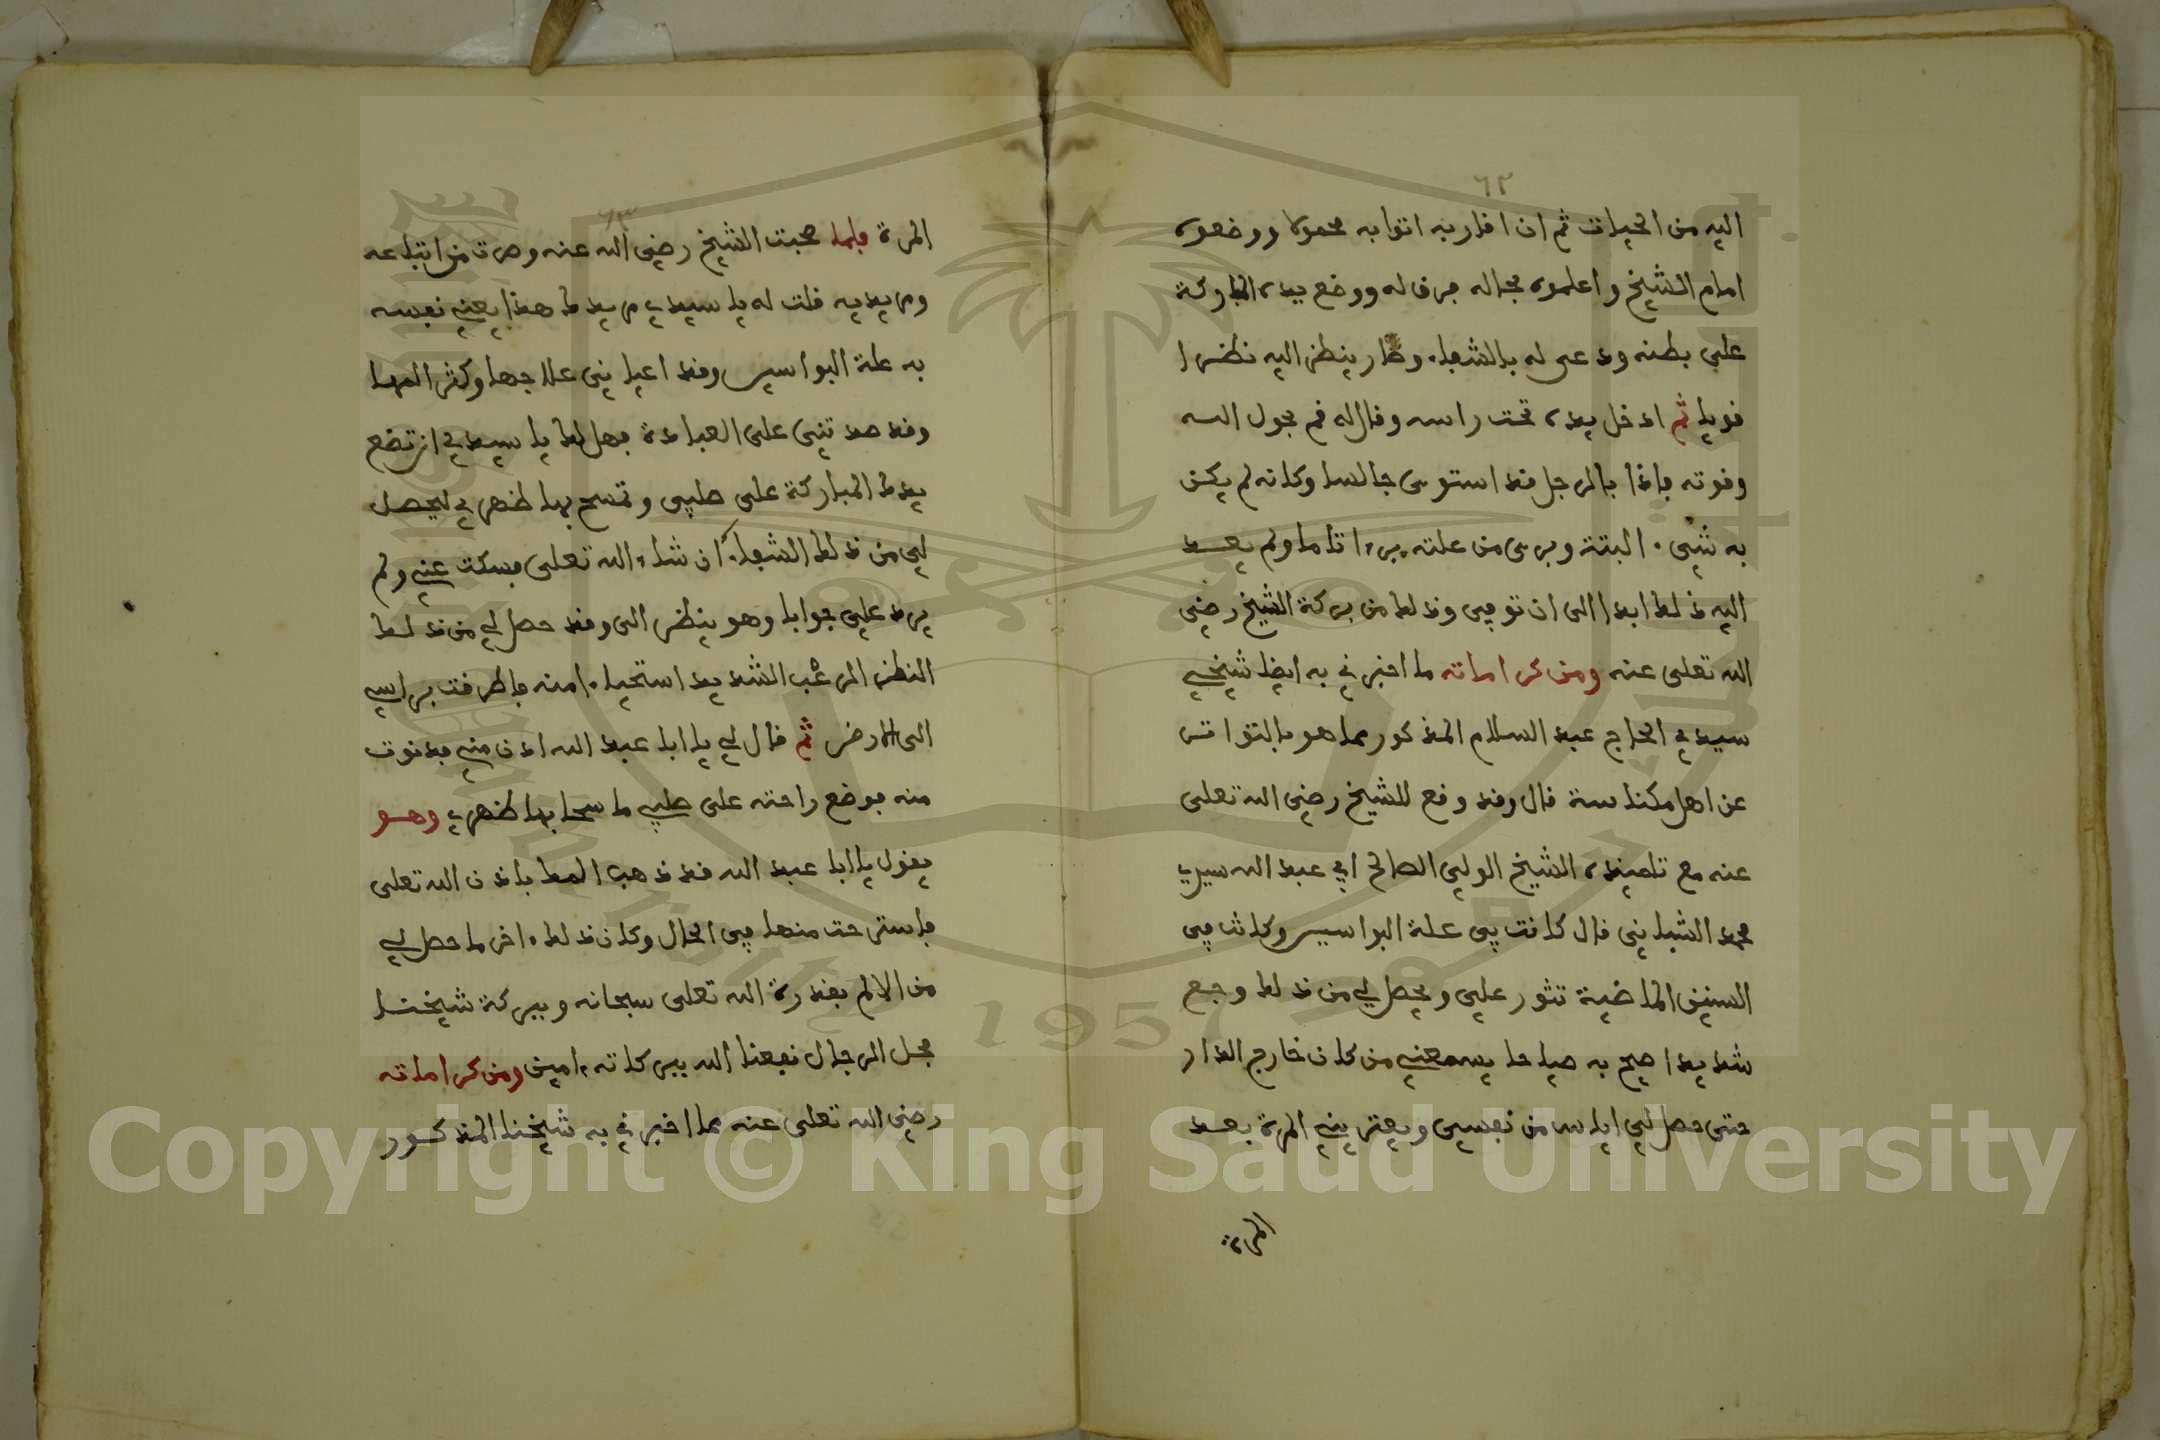 ٦٢
اليه من الحيات ثم ان اقاربه اتوا به محمولا ووضعوه
امام الشيخ واعلموه بحاله فرق له ووضع يده المباركة
على بطنه ودعى له بالشفاء وصار ينظر اليه نظرا
قويا ثم ادخل يده تحت راسه وقال له قم بحول الله
وقوته فاذا بالرجل قد استوى جالسا وكانه لم يكن
به شيء البتة وبرى من علته برءا تاما ولم يعد
اليه ذلك ابدا الى ان توفي وذلك من بركة الشيخ رضي
الله تعلى عنه ومن كراماته ما اخبرني به ايضا شيخي
سيدي الحاج عبد السلام المذكور مما هو بالتواتر
عن اهل مكناسة قال وقد وقع للشيخ رضي الله تعلى
عنه مع تلميذه الشيخ الولي الصالح ابي عبد الله سيدي
محمد الشباني قال كانت بي علة البواسير وكانت في
السنين الماضية تثور علي ويحصل لي من ذلك وجع
شديد اصيح به صياحا يسمعني من كان خارج الدار
حتى حصل لي اياس من نفسي ويعتريني المرة بعد
المرة
٦٣
المرة فلما صحبت الشيخ رضي الله عنه وصرت من اتباعه
ومريديه قلت له يا سيدي مريدك هذا يعني نفسه
به علة البواسير وقد اعياني علاجها وكثر المها
وقد صدتني على العبادة فهل لك يا سيدي ان تضع
يدك المباركة على صلبي وتمسح بها ظهري ليحصل
لي من ذلك الشفاء ان شاء الله تعلى فسكت عني ولم
يرد علي جوابا وهو ينظر الى وقد حصل لي من ذلك
النظر الرعب الشديد استحياء منه فاطرقت براسي
الى الارض ثم قال لي يا ابا عبد الله ادن مني فدنوت
منه فوضع راحته على صلبي ماسحا بها ظهري وهو
يقول يا ابا عبد الله قد ذهب المك باذن الله تعلى
فاسترحت منها في الحال وكان ذلك ءاخر ما حصل لي
من الالم بقدرة الله تعلى سبحانه وببركة شيخنا
فحل الرجال نفعنا الله ببركاته ءامين ومن كراماته
رضي الله تعلى عنه مما اخبرني به شيخنا المذكور
1957
Copyright © King Saud University